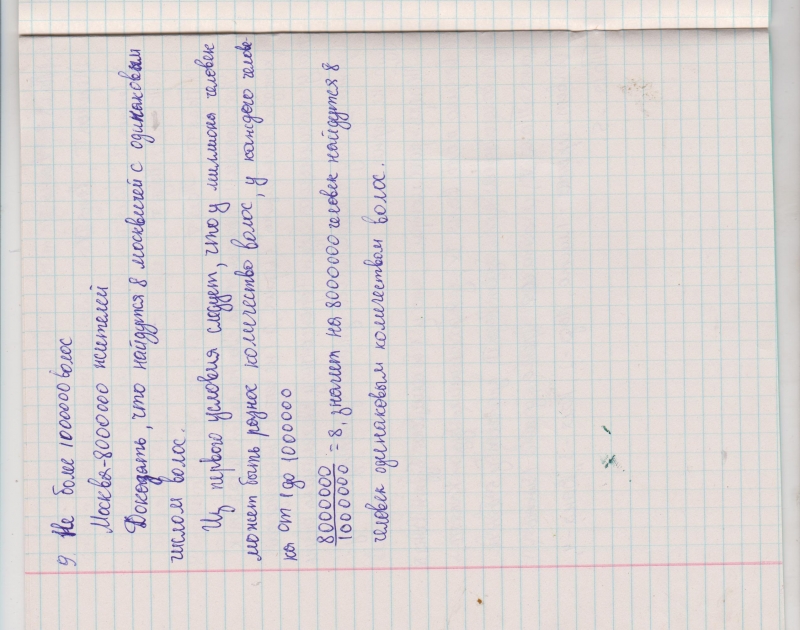 9. Не более 1000000 волос
Москва-8000000 жителей
Доказать, что найдутся 8 москвичей с одинаковым
числом волос.
Из первого условия следует, что у миллиона человек
может быть разное количество волос, у каждого челове-
ка от 1 до 1000000
8000000/1000000 = 8, значит на 8000000 человек найдутся 8
человек одинаковым количеством волос.